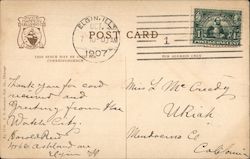 ELGIN, ILL.
1907
POST CARD
THIS SPACE MAY BE USED FOR
CORRESPONDENCE
FOR ADDRESS ONLY
1
Thank you for card
received and
Greeting from the
Watch City.
Harold Reed
Ashland ave
Elgin Ill
Miss L McCready
Ukiah
Mendocino Co
California